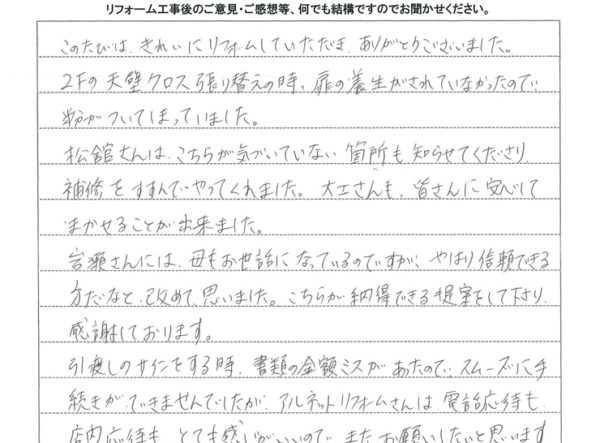 リフォーム工事後のご意見・ご感想等、何でも結構ですのでお聞かせください。
このたびは、きれいにリフォームしていただき、ありがとうございました。
2Fの天壁クロス張り替えの時、扉の養生がされていなかったので
粉がついてしまっていました。
松舘さんは、こちらが気づいていない箇所も知らせてくださり
補修をすすんでやってくれました。大工さんも、皆さんに安心して
まかせることが出来ました。
さんには、母もお世話になっているのですが、やはり信頼できる
方だなと、改めて、思いました。こちらが納得できる提案をして下さり、
感謝しております。
引渡しのサインをする時、書類の金額ミスがあったので、スムーズに手
続きができませんでしたが、アルネットリフォームさんは、電話応対も
店内応対も、とても感じがいいので、またお願いしたいと思います